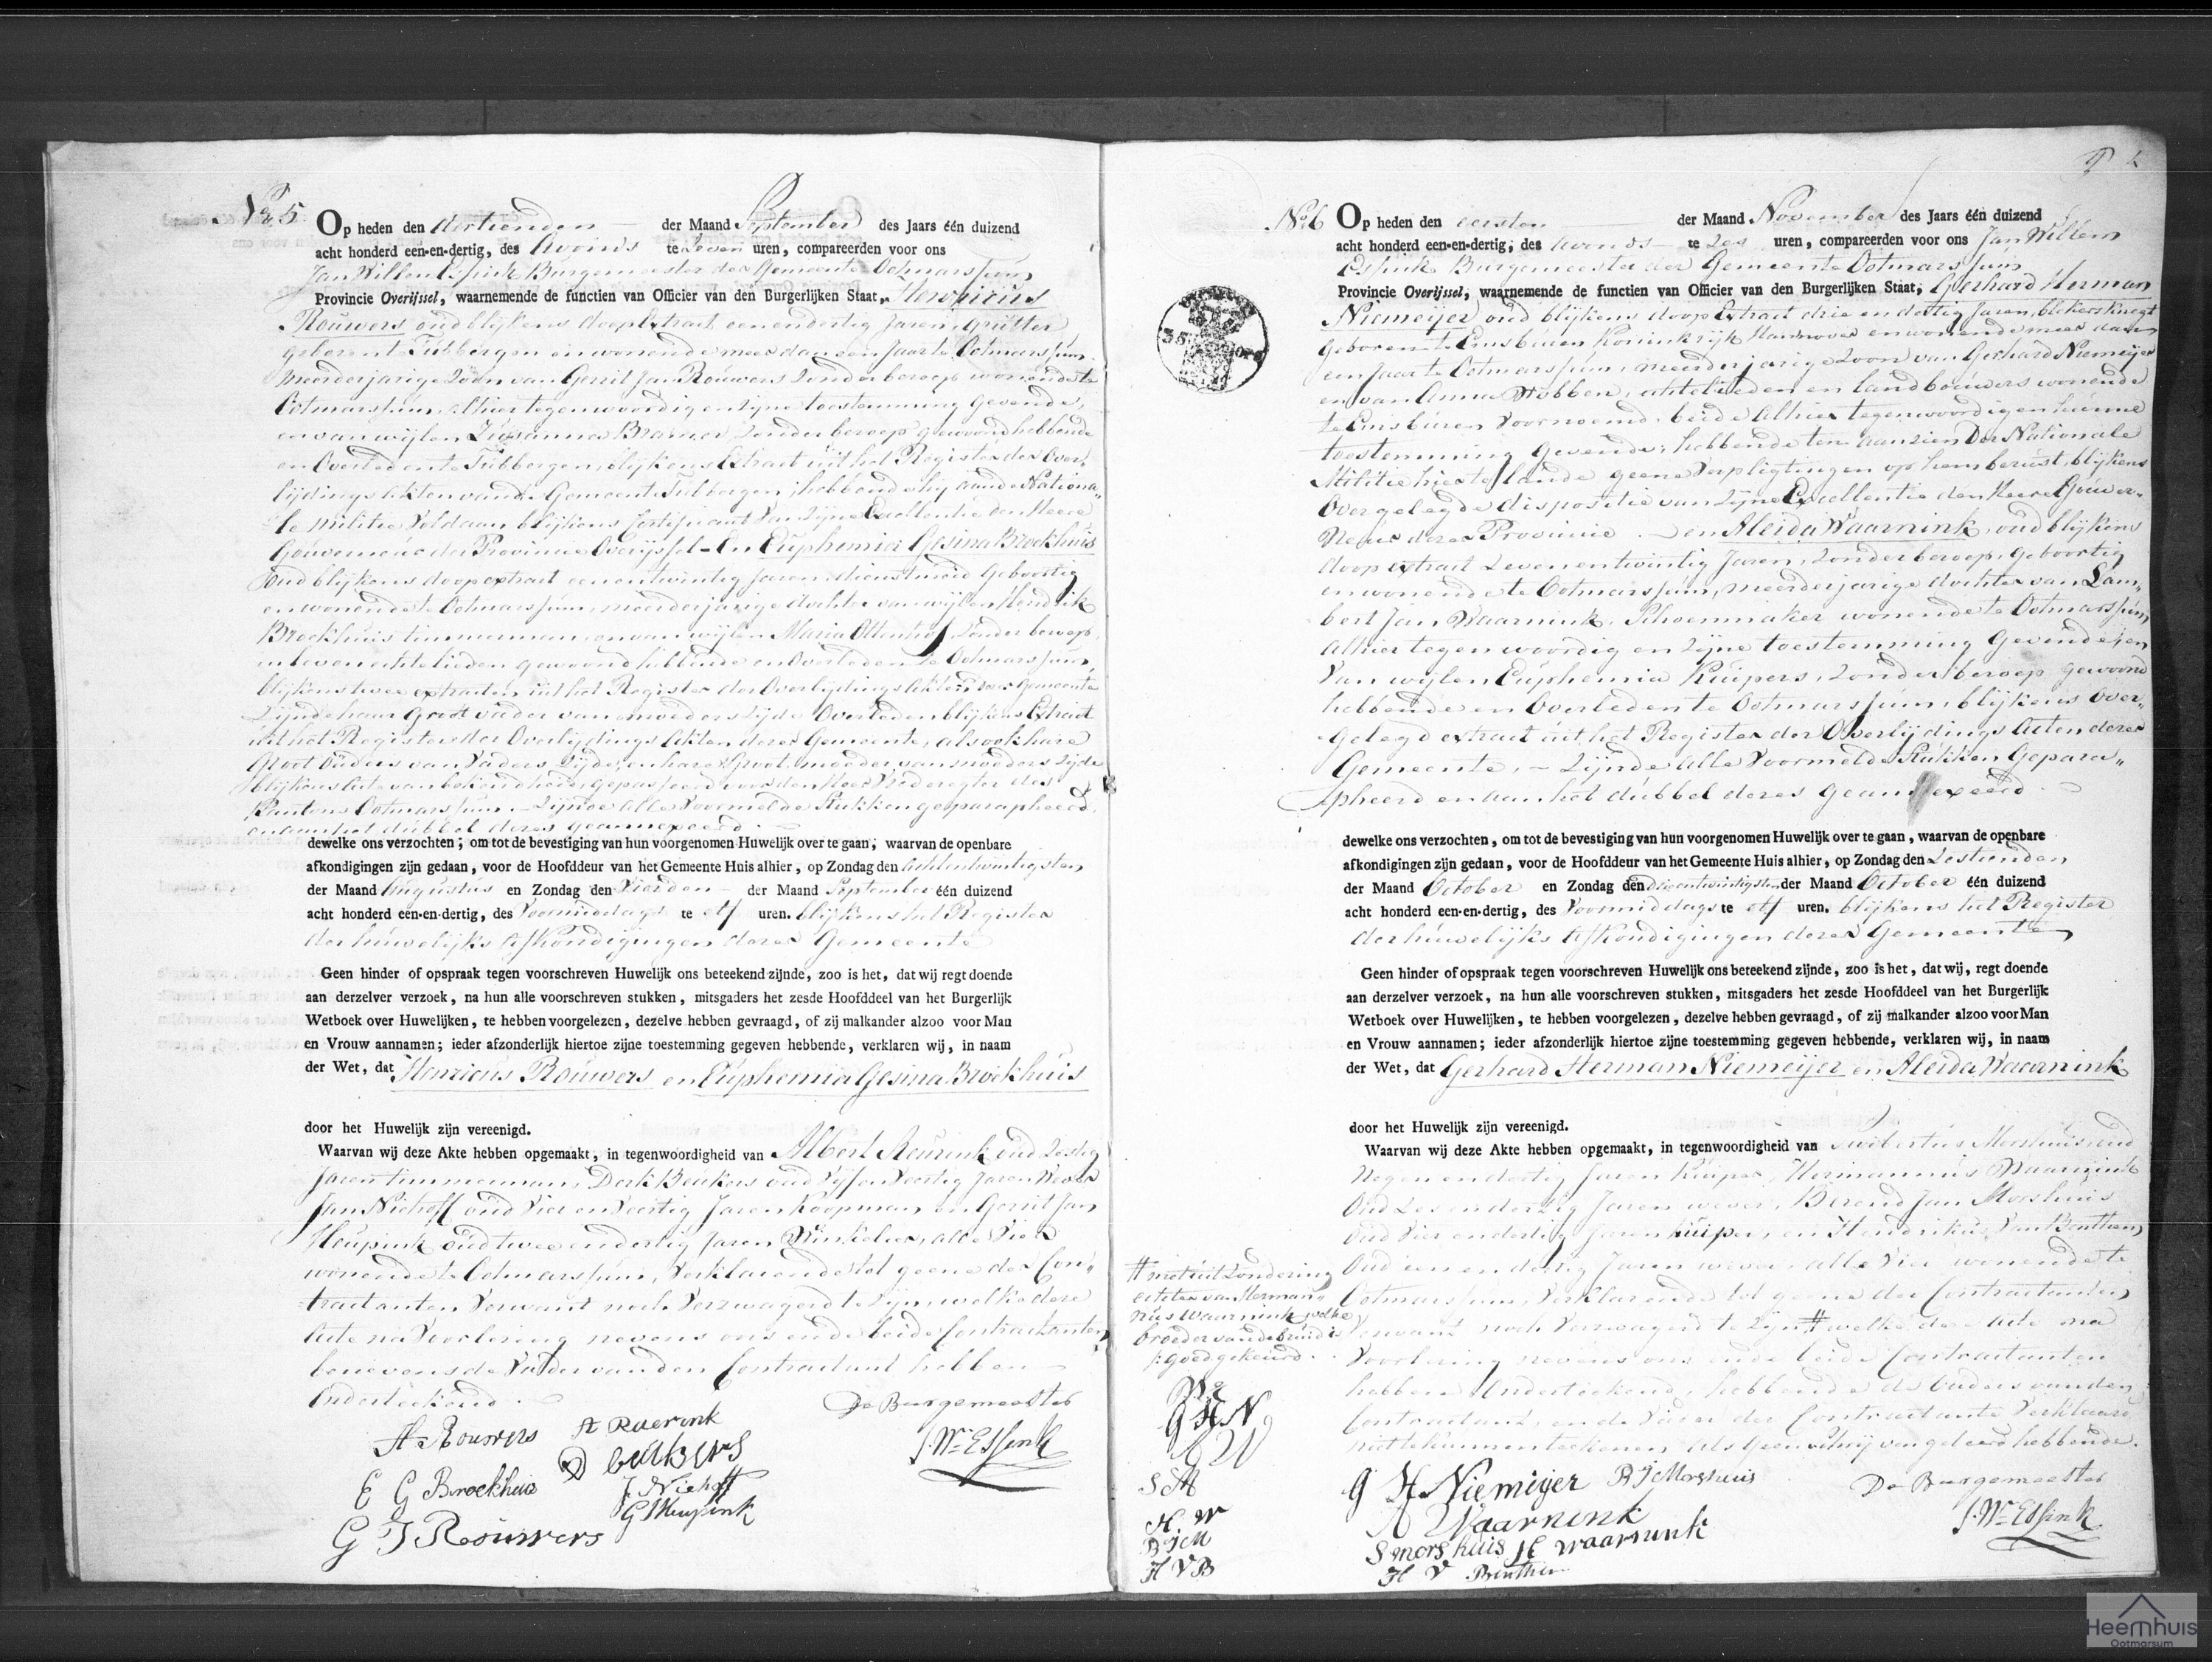 No 5 Op heden den dertienden der Maand September des Jaars één duizend
acht honderd een-en-dertig, des Avonds te Zeven uren, compareerden voor ons
Jan Willem Essink Burgemeester der Gemeente Ootmarssum
Provincie Overijssel, waarnemende de functien van Officier van den Burgerlijken Staat, Henricus
Rouwers oud blijkens doop Extract een en dertig Jaren,
geboren te Tubbergen en wonende meer dan een Jaar te Ootmarssum
meerderjarige Zoon van Gerrit Jan Rouwers Zonder beroep wonende te
Ootmarssum, alhier tegenwoordig en zijne toestemming gevende,
en van wijlen Susanna Zonder beroep gewoond hebbende
en Overleden te Tubbergen, blijkens Extract uit het Register der Over„
lijdings Akten van de Gemeente Tubbergen, hebbende hij aan de Nationa„
le Militie Voldaan blijkens Certificaat van Zijne Excellentie den Heere
Gouverneur der Provincie Overijssel - En Euphemia Gesina Broekhuis
Oud blijkens doop extract een en twintig Jaren, dienstmeid Geboortig
en wonende te Ootmarssum, meerderjarige dochter van wijlen Hendrik
Broekhuis timmerman, en van wijlen Maria Ottenhof, Zonder beroep,
in leven echtelieden gewoond hebbende en Overleden te Ootmarssum,
blijkens twee extracten uit het Register der Overlijdings Akten dezer Gemeente
Zijnde haar Groot vader van moeders Zijde Overleden blijkens Extract
uit het Register der Overlijdings Akten dezer Gemeente, als ook hare
Groot Ouders van Vaders Zijde, en hare Groot moeder van moeders Zijde
blijkens Acte van bekendheid, gepasseerd voor den Heer Vrederegter des
Kantons Ootmarssum. - Zijnde alle voormelde Stukken geparapheerd,
en aan het dubbel dezes geannexeerd.
dewelke ons verzochten, om tot de bevestiging van hun voorgenomen Huwelijk over te gaan, waarvan de openbare
afkondigingen zijn gedaan, voor de Hoofddeur van het Gemeente Huis alhier, op Zondag den achtentwintigsten
der Maand Augustus en Zondag den Vierden der Maand September één duizend
acht honderd een-en-dertig, des Voormiddags te elf uren. blijkens het Register
der huwelijks Afkondigingen dezer Gemeente
Geen hinder of opspraak tegen voorschreven Huwelijk ons beteekend zijnde, zoo is het, dat wij regt doende
aan derzelver verzoek, na hun alle voorschreven stukken, mitsgaders het zesde Hoofddeel van het Burgerlijk
Wetboek over Huwelijken, te hebben voorgelezen, dezelve hebben gevraagd, of zij malkander alzoo voor Man
en Vrouw aannamen; ieder afzonderlijk hiertoe zijne toestemming gegeven hebbende, verklaren wij, in naam
der Wet, dat Henricus Rouwers en Euphemia Gesina Broekhuis
door het Huwelijk zijn vereenigd.
Waarvan wij deze Akte hebben opgemaakt, in tegenwoordigheid van Albert oud Zestig
Jaren timmerman, Derk Beukers oud Vijf en Veertig Jaren Wever
Jan Niehoff oud Vier en Veertig Jaren Koopman en Gerrit Jan
Heupink oud twee en dertig Jaren Winkelier, alle Vier
wonende te Ootmarssum, Verklarende tot geene der Con„
tractanten Verwant noch Verzwagerd te Zijn, welke deze
Acte na Voorlezing nevens ons ende beide Contractanten
benevens de Vader van den Contractant hebben
Onderteekend.
De Burgemeester
H Rouwers
E G Broekhuis
G J Rouwers
D beukers
J. Niehoff
G J Heupink
J. Wm Essink
No 6 Op heden den eersten der Maand November des Jaars één duizend
acht honderd een-en-dertig, des Avonds te Zes uren, compareerden voor ons Jan Willem
Essink Burgemeester der Gemeente Ootmarssum
Provincie Overijssel, waarnemende de functien van Officier van den Burgerlijken Staat, Gerhard Herman
Niemeijer oud blijkens doop Extract drie en dertig Jaren, blekersknegt
Geboren te Emsburen Koninkrijk Hannover en wonende meer dan
een Jaar te Ootmarssum, meerderjarige Zoon van Gerhard Niemeijer
en van Anna Wobben, echtelieden en landbouwers wonende
te Emsburen Voornoemd, beide Alhier tegenwoordig en hunne
toestemming Gevende, hebbende ten aanzien der Nationale
Militie hier te lande geene Verpligtingen op hem berust, blijkens
Overgelegde dispositie van Zijne Excellentie den Heere Gouver„
neur dezer Provincie. - en Aleida Waarnink, oud blijkens
doop extract Zeven en twintig Jaren, Zonder beroep, geboortig
en wonende te Ootmarssum, meerderjarige dochter van Lam„
bert Jan Waarnink, Schoenmaker wonende te Ootmarssum,
Alhier tegenwoordig en Zijne toestemming Gevende, en
Van wijlen Euphemia Kuipers, Zonder beroep gewoond
hebbende en Overleden te Ootmarssum, blijkens Over„
gelegd extract uit het Register der Overlijdings Acten dezer
Gemeente, - Zijnde Alle Voormelde Stukken Gepara„
pheerd en aan het dubbel dezes geannexeerd.
dewelke ons verzochten, om tot de bevestiging van hun voorgenomen Huwelijk over te gaan, waarvan de openbare
afkondigingen zijn gedaan, voor de Hoofddeur van het Gemeente Huis alhier, op Zondag den Zestienden
der Maand October en Zondag den Drieentwintigsten der Maand October één duizend
acht honderd een-en-dertig, des Voormiddags te elf uren. blijkens het Register
der huwelijks Afkondigingen dezer Gemeente
Geen hinder of opspraak tegen voorschreven Huwelijk ons beteekend zijnde, zoo is het, dat wij, regt doende
aan derzelver verzoek, na hun alle voorschreven stukken, mitsgaders het zesde Hoofddeel van het Burgerlijk
Wetboek over Huwelijken, te hebben voorgelezen, dezelve hebben gevraagd, of zij malkander alzoo voor Man
en Vrouw aannamen; ieder afzonderlijk hiertoe zijne toestemming gegeven hebbende, verklaren wij, in naam
der Wet, dat Gerhard Herman Niemeijer en Aleida Waarnink
door het Huwelijk zijn vereenigd.
Waarvan wij deze Akte hebben opgemaakt, in tegenwoordigheid van Swibertus Morshuis oud
Negen en dertig Jaren Kuiper, Hermannus Waarnink
Oud Zes en dertig Jaren wever, Berend Jan Morshuis
Oud Vier en dertig Jaren kuiper, en Hendrikus Van Benthem
Oud een en dertig Jaren wever, alle Vier wonende te
Ootmarssum, Verklarende tot geene der Contractanten
Verwant noch Verzwagerd te Zijn # welke deze Acte na
Voorlezing nevens ons ende beide Contractanten
hebben Onderteekend, hebbende de Ouders van den
Contractant, en de Vader der Contractante Verklaard
niet te kunnen teekenen als geen schrijven geleerd hebbende.
# met uitzondering
echter van Herman„
nus Waarnink welke
broeder van de bruid is
goedgekeurd.
G H N
A W
S M
H. W
B J M
H V B
De Burgemeester
G H Niemeijer
B J Morshuis
A Waarnink
S morshuis
H waarnink
H V Benthem
J. Wm Essink
Heemhuis
Ootmarsum